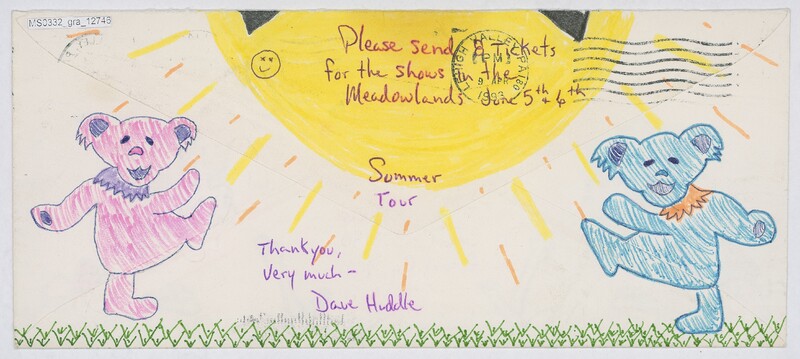 MS0332_gra_12746
Please send 8 Tickets
for the shows in the
Meadowlands June 5th & 6th
LEHIGH VALLEY PA 180
PM
9 APR
1993
Summer
Tour
Thankyou,
Very much -
Dave Huddle